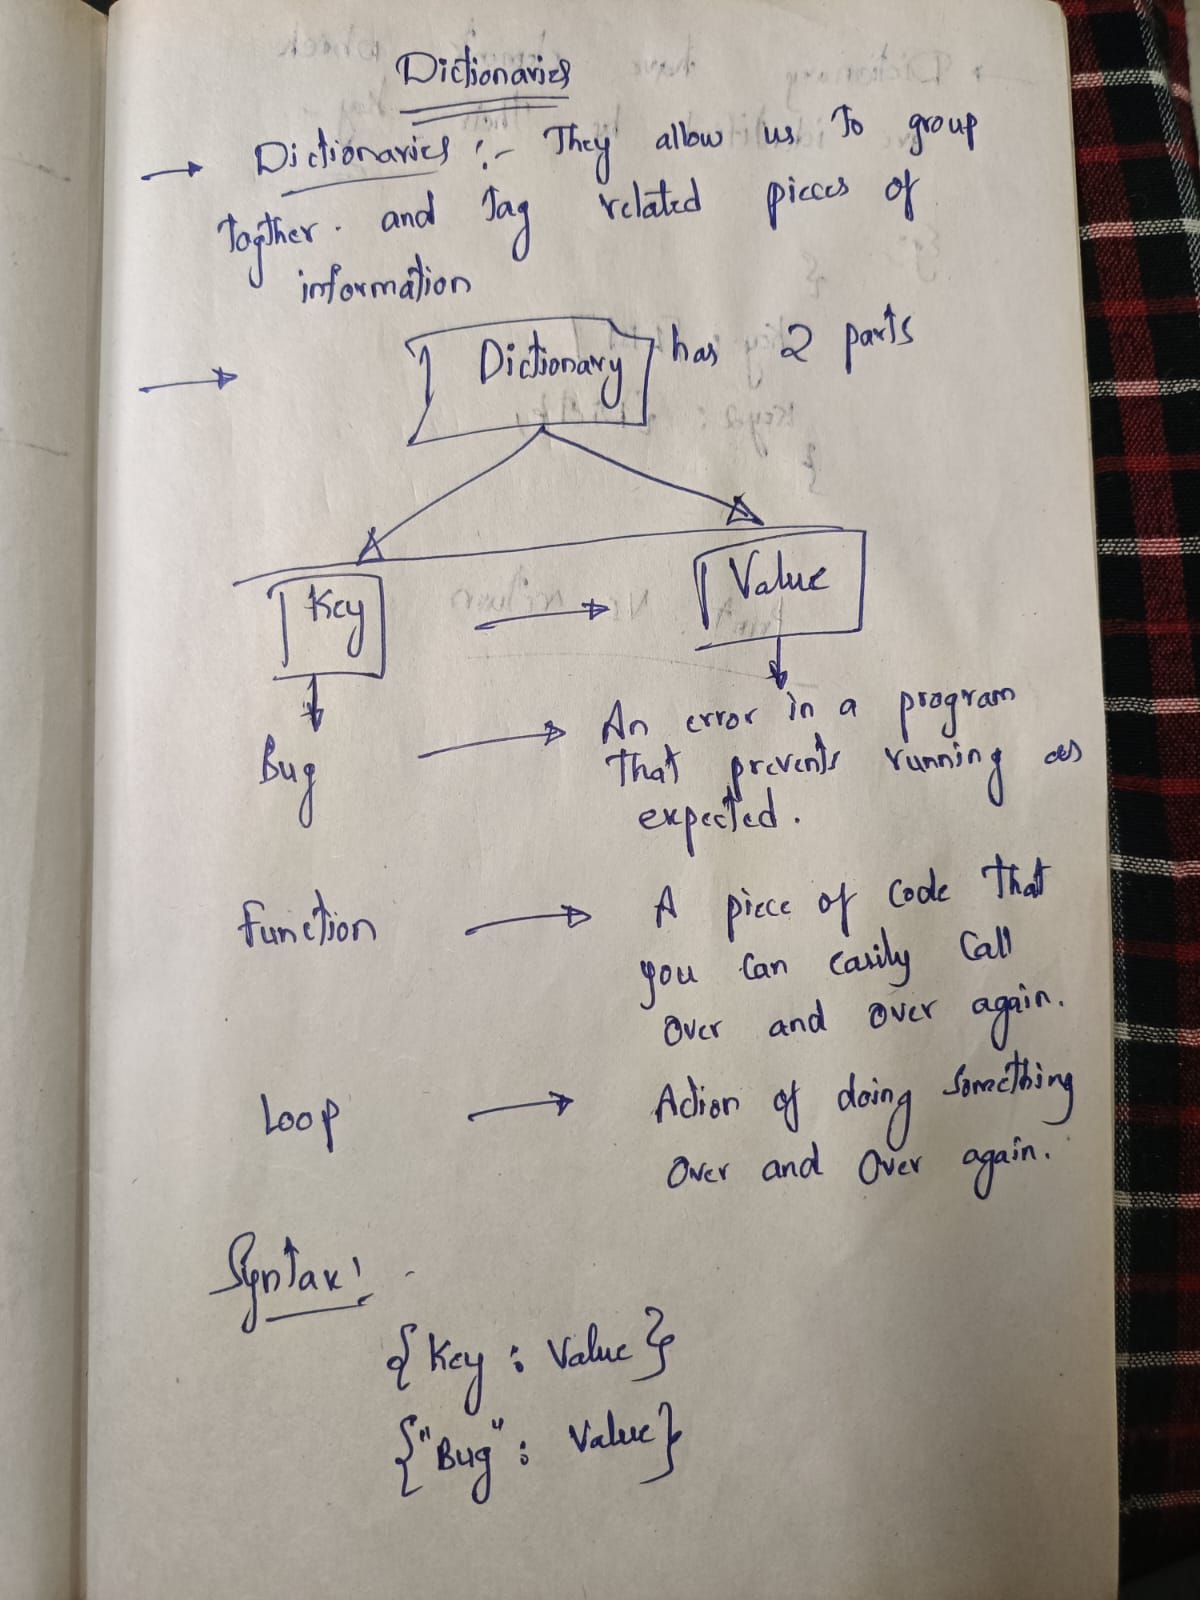 Dictionaries
→ Dictionaries :- They allow us to group
together. and Tag related pieces of
information
→ Dictionary has 2 parts
Key → Value
Bug → An error in a program
that prevents running as
expected.
Function → A piece of code that
you can easily call
over and over again.
Loop → Action of doing something
over and over again.
Syntax:-
{Key : Value}
{"Bug" : Value}